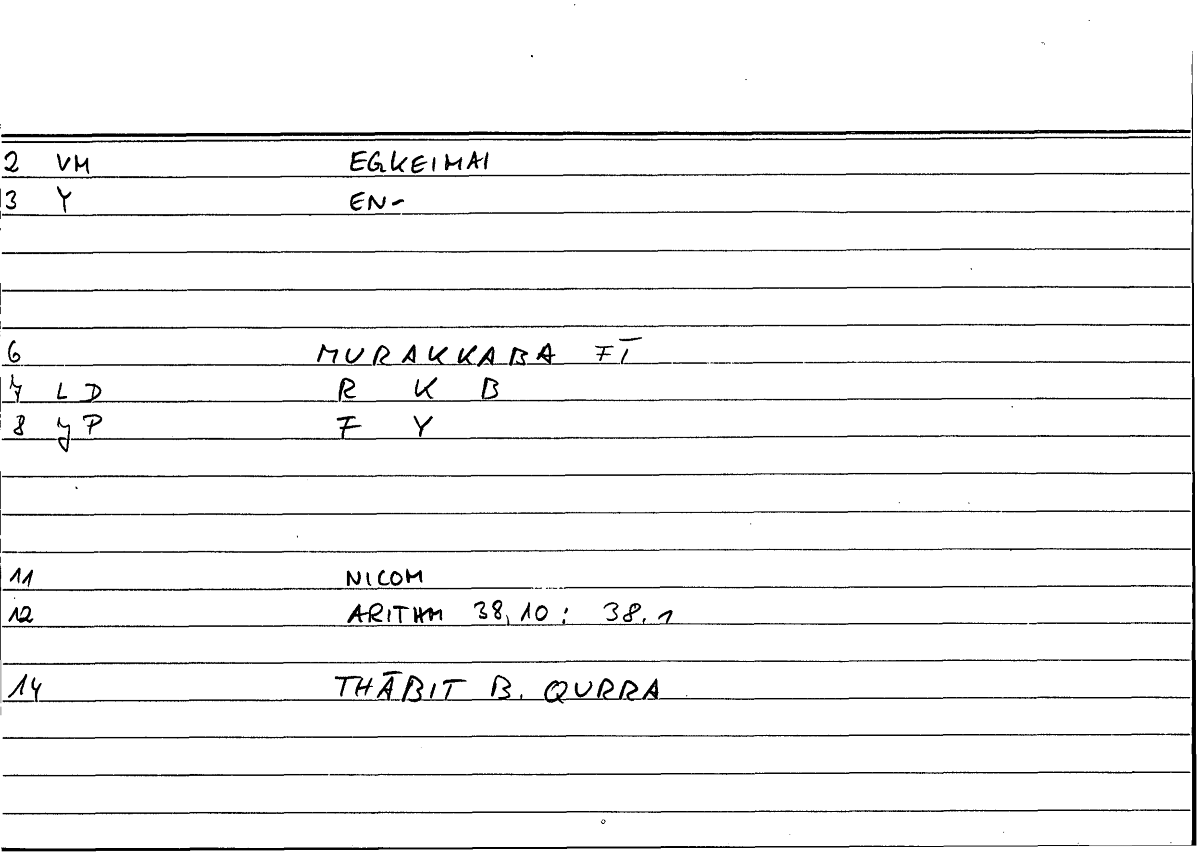 2 VM EGKEIMAI
3 Y EN-
6 MURAKKABA FĪ
7 L D R K B
8 y P F Y
11 NICOM
12 ARITHM 38,10 : 38.1
14 THĀBIT B. QURRA